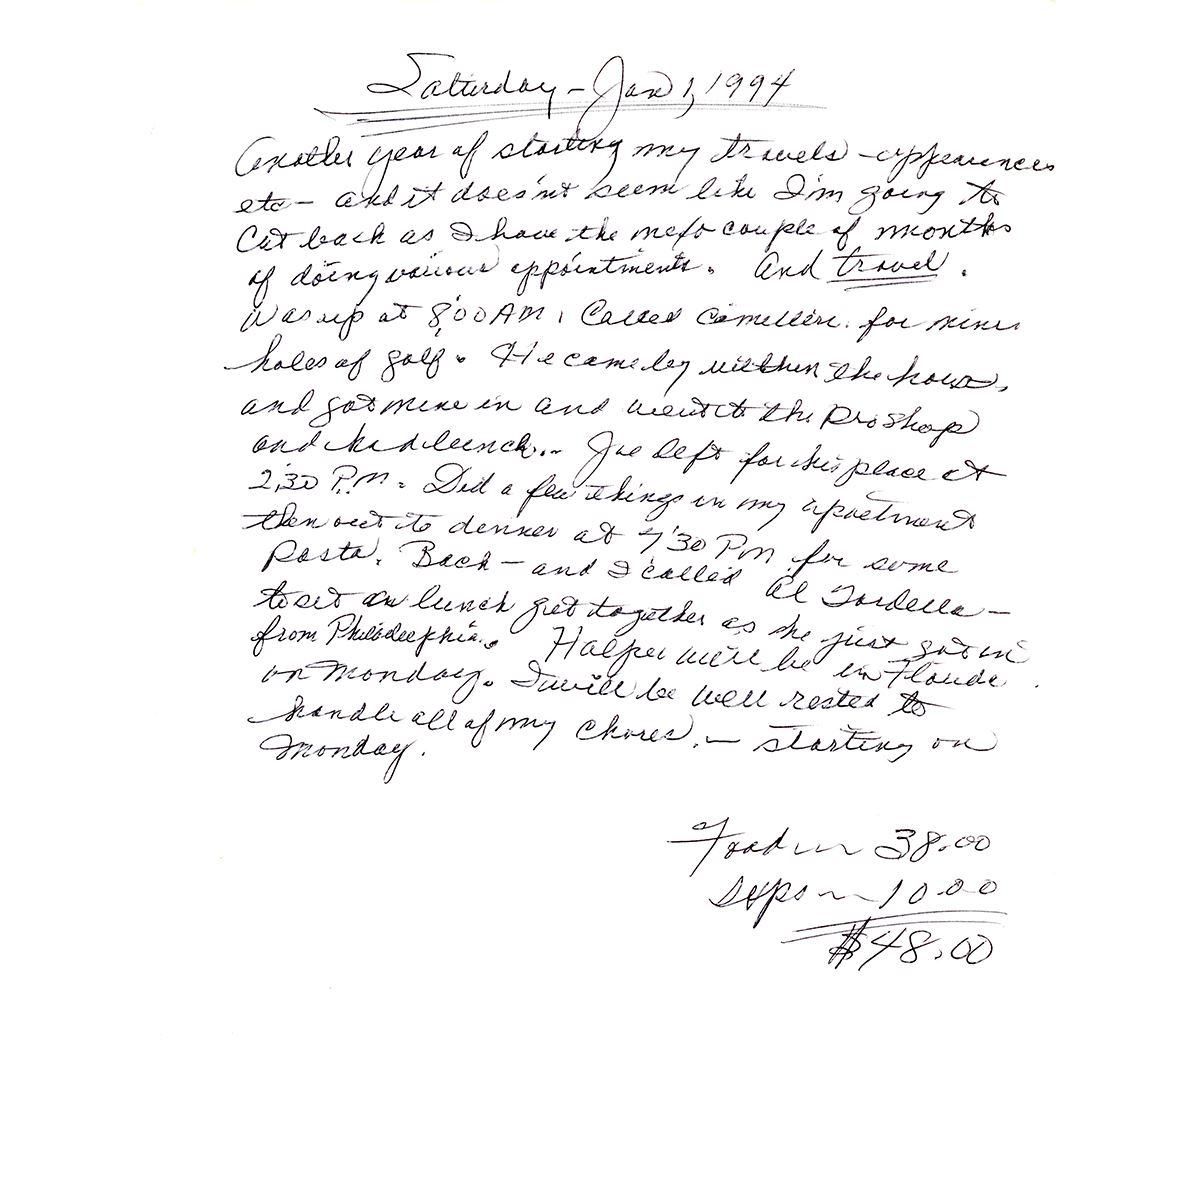 Saturday - Jan 1, 1994
Another year of starting my travels - appearences
etc - and it does'nt seem like I'm going to
Cut back as I have the next couple of months
of doing various appointments. And travel.
Was up at 8:00 AM. Called Camilleri for nine
holes of golf. He came by within the hour,
and got nine in and went to the Pro Shop
and had lunch.. Joe left for his place at
2:30 P.M. Did a few things in my apartment
then out to dinner at 7:30 PM for some
Pasta. Back - and I called Al Tordella -
to set a lunch get together as he just got in
from Philadelphia. Halper will be in Florida
on Monday. I will be well rested to
handle all of my chores. - starting on
Monday.
Food 38.00
tips 10.00
$48.00